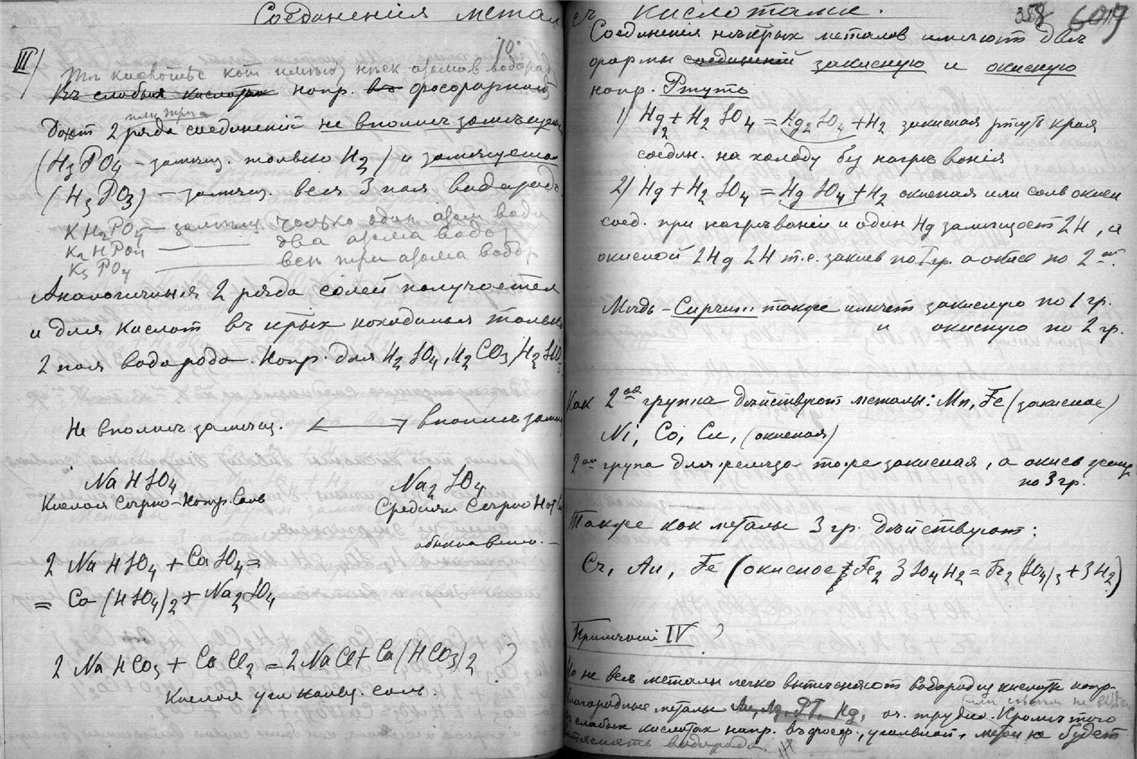 Соединенія метал
III)
Тѣ кислоты кот имѣют
Въ слабыя кислоты напр. фосфорная
или три
Даютъ 2 ряда соединеній не вполнѣ замѣщен
(H3PO4 – замѣщ. только H2) и замѣщеніе
(H3PO3) – замѣщ. всѣ пая водорода
KH2PO4 – замѣщ только один атом водо
K2HPO4 два атома водор
K3PO4 всѣ три атома водор
Аналогичныя 2 ряда солей получается
и для кислот въ ктрых находится только
2 пая водорода. Напр. для H2SO4, H2CO3, H2SO
Не вполнѣ замѣщ. вполнѣ замѣщ
NaHSO4 Na2SO4
Кислая Сѣрно-Натр. Соль Средняя Сѣрно Нат Со
2 NaHSO4 + CaSO4 =
= Ca(HSO4)2 + Na2SO4
2 NaHCO3 + CaCl2 = 2NaCl + Ca(HCO3)2 ?
Кислая соль.
съ кислотами. 358 6017
Соединенія нѣктрых металов имѣют двѣ
формы соединеній закисную и окисную
напр. Ртуть
1) Hg2 + H2SO4 = Hg2SO4 + H2 закисная ртуть
соедин. на холоду без нагрѣванія
2) Hg + H2SO4 = HgSO4 + H2 окисная или соль окиси
соед. при нагрѣваніи и один Hg замѣщает 2H, а
окисной 2Hg 2H т.е. закись по 1 гр. а окись по 2ой.
Мѣдь – также имѣет закисную по 1 гр.
и окисную по 2 гр.
Как 2ая группа дѣйствуют металы: Mn, Fe (закисное)
Ni, Co, Cu, (окисная)
2ая група для желѣза тоже закисная, а окись
по 3 гр.
Также как металы 3 гр. дѣйствуют:
Cr, Au, Fe (окисное Fe2 3SO4H2 = Fe2(SO4)3 + 3H2)
Примѣчаніе IV ?
Но не всѣ металы легко вытѣсняют водород из кислоты напр.
благородные металы Au, Ag, PT, Hg, оч. трудно. Кромѣ того
слабых кислотах напр. въ фосфор., угольной, не будет
водорода.